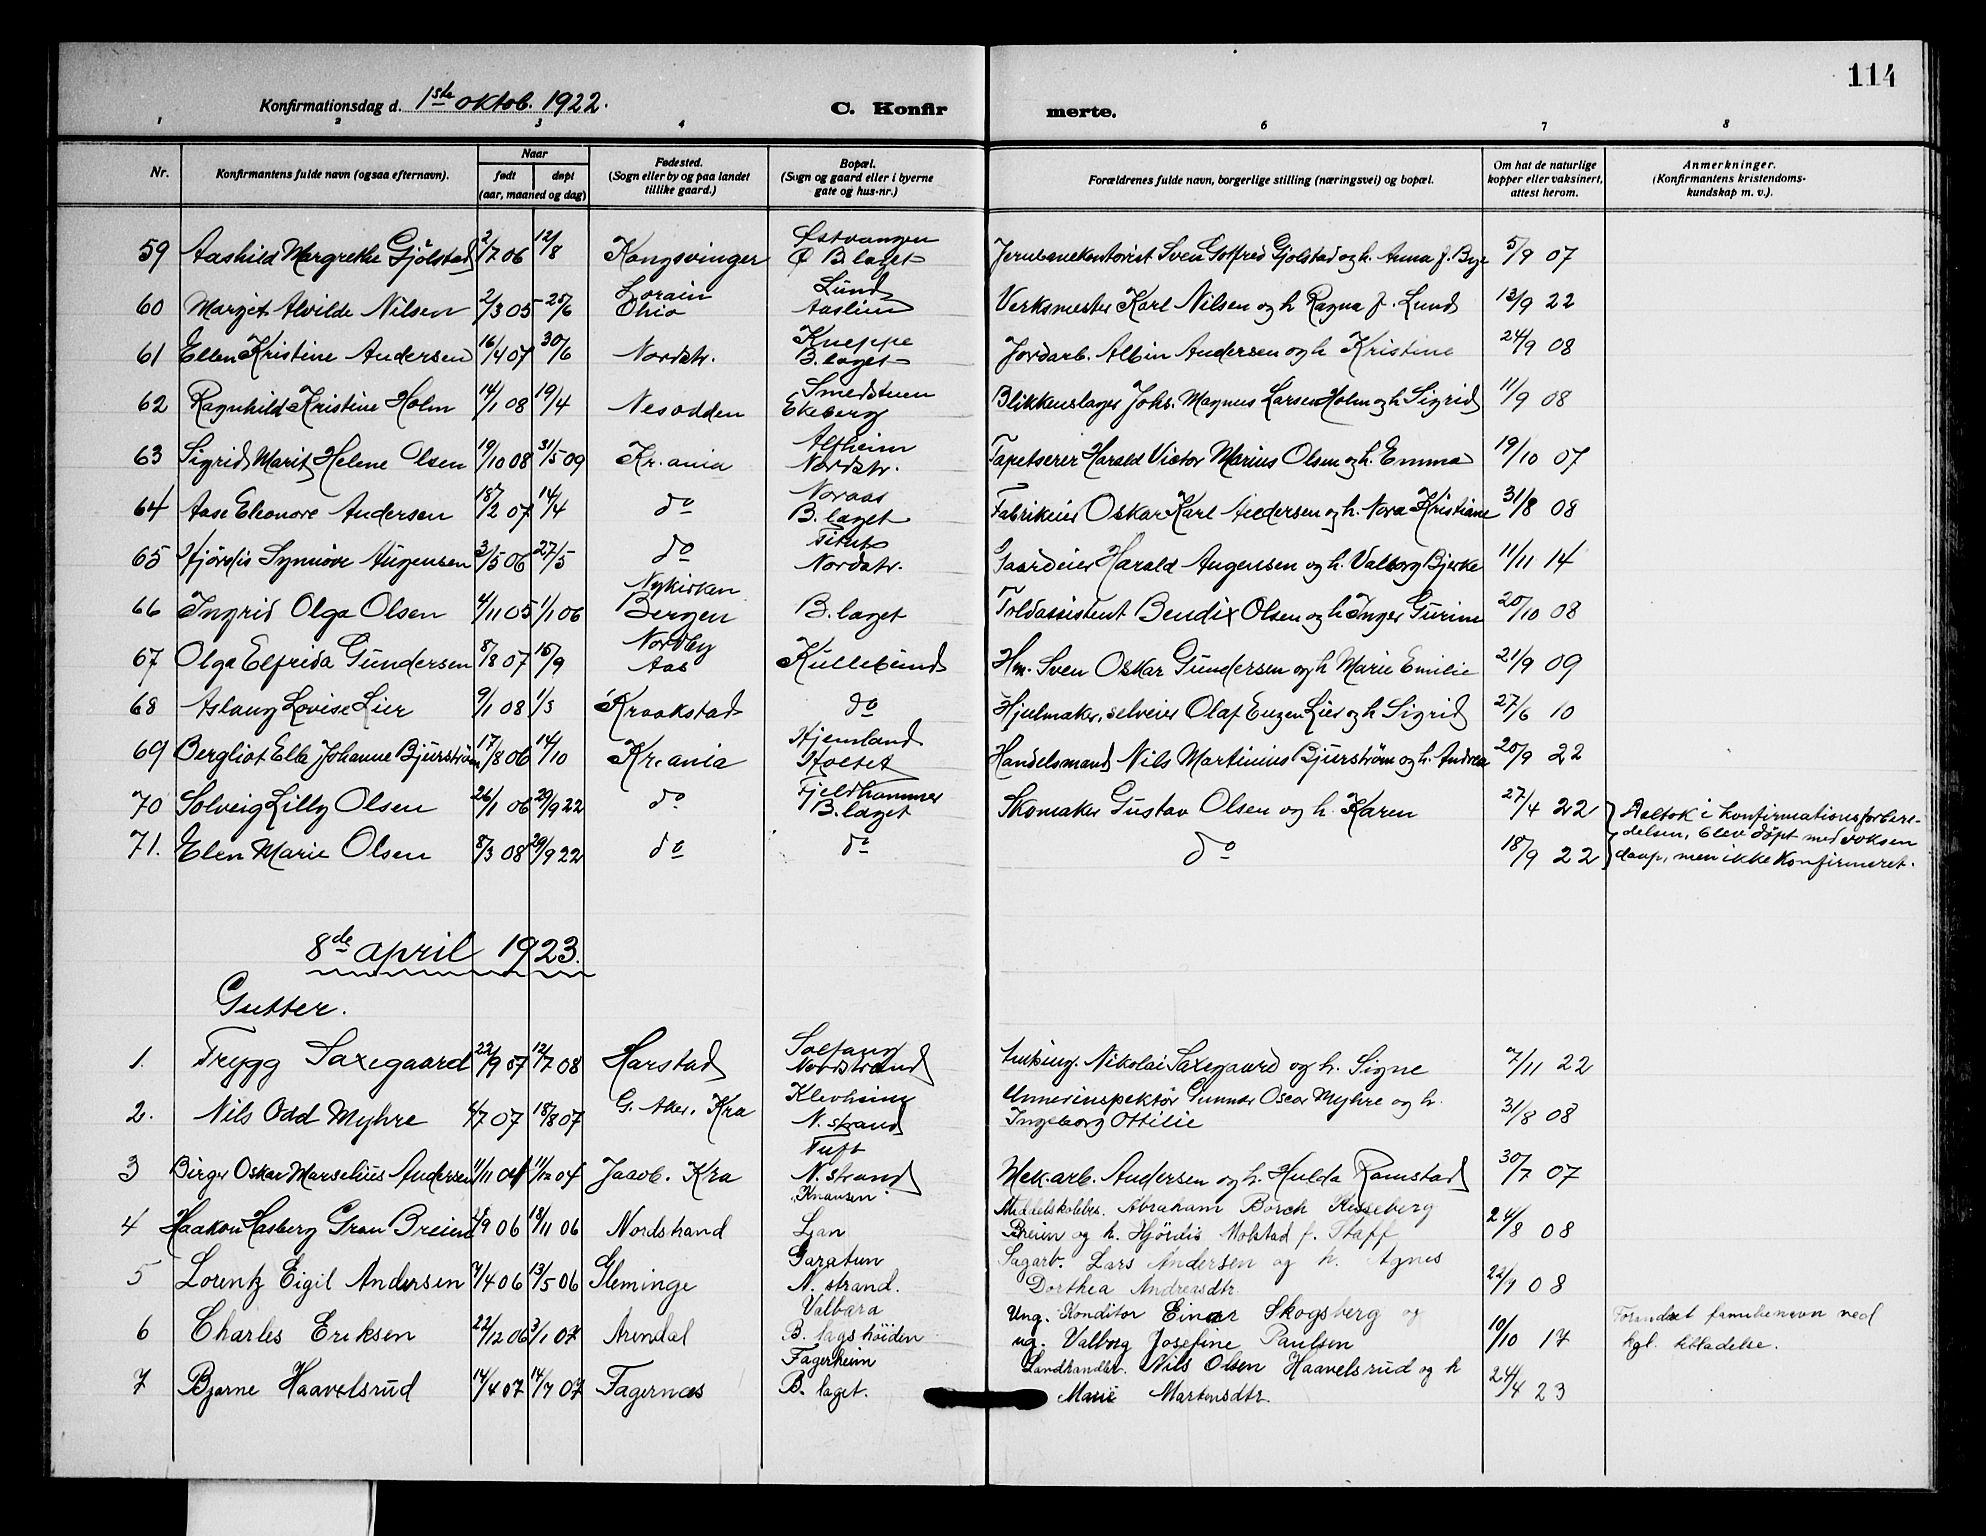 114
Konfirmationsdag d. 1ste oktob. 1922. C. Konfirmerte.
1 2 3 4 6 7 8
Nr. Konfirmantens fulde navn (ogsaa efternavn). Naar født døpt (aar, maaned og dag) Fødested. (Sogn eller by og paa landet tillike gaard.) Bopæl. (Sogn og gaard eller i byerne gate og hus-nr.) Forældrenes fulde navn, borgerlige stilling (næringsvei) og bopæl. Om hat de naturlige kopper eller vaksinert, attest herom. Anmerkninger. (Konfirmantens kristendomskundskap m. v.).
59 Aashild Margrethe Gjølstad 2/7 06 12/8 Kongsvinger Østvangen Ø B.laget Jernbanekontorist Sven Gotfred Gjølstad og h. Anna f. Bye 5/9 07
60 Margit Alvilde Nilsen 2/3 05 25/6 Lorain Ohio Lund Aaslien Verksmester Karl Nilsen og h Ragna f. Lund 13/9 22
61 Ellen Kristine Andersen 16/4 07 30/6 Nordstr. Kneppe B.laget Jordarb. Albin Andersen og h Kristine 24/9 08
62 Ragnhild Kristine Holm 14/1 08 19/4 Nesodden Smedstuen Ekeberg Blikkenslager Johs. Magnus Larsen Holm og h Sigrid 11/9 08
63 Sigrid Marit Helene Olsen 19/10 08 31/5 09 Kr.ania Alfheim Nordstr. Tapetserer Harald Victor Marius Olsen og h. Emma 19/10 07
64 Aase Eleonore Andersen 18/2 07 14/4 do Noraas B.laget Fabrikeier Oskar Karl Andersen og h. Nora Kristiane 31/8 08
65 Hjørdis Synnøve Augensen 3/5 06 27/5 do Nordstr. Gaardeier Harald Augensen og h. Valborg Bjerke 11/11 14
66 Ingrid Olga Olsen 4/11 05 1/1 06 Nykirken Bergen B.laget Toldassistent Bendix Olsen og h Inger Gurine 20/10 08
67 Olga Elfrida Gundersen 8/8 07 15/9 Nordby Aas Kullebund Hm. Sven Oskar Gundersen og h Marie Emilie 21/9 09
68 Aslaug Lovise Lier 9/1 08 1/3 Kraakstad do Hjulmaker, selveier Olaf Eugen Lier og h Sigrid 27/6 10
69 Bergliot Ella Johanne Bjurstrøm 17/8 06 14/10 Kr.ania Hjemland Holtet Handelsmand Nils Martinius Bjurstrøm og h. Andrea 20/9 22
70 Solveig Lilly Olsen 26/1 06 29/9 22 do Fjeldhammer B.laget Skomaker Gustav Olsen og h. Karen 27/4 22 Deltok i konfirmationsforbere-
71. Elen Marie Olsen 8/3 08 29/9 22 do do do 18/9 22 delsen, blev døpt med voksen
daap, men ikke konfirmeret.
8de april 1923.
Gutter.
1. Trygg Saxegaard 22/9 07 12/7 08 Harstad Solfang Nordstrand Nikolai Saxegaard og h. Signe 7/11 22
2. Nils Odd Myhre 4/7 07 18/8 07 G. Aker. Kra Klevheim N.strand inspektør Gunnar Oscar Myhre og h. Ingeborg Ottilie 31/8 08
3 Birger Oskar Marselius Andersen 11/11 04 11/12 04 Jacob. Kra Tuft N.strand Mek.arb. Andersen og h. Hulda Ramstad 30/7 07
4 Haakon Hasberg Gran Breien 9 06 18/11 06 Nordstrand Knausen. Ljan Middelskolebs. Abraham Borch Hesseberg Breien og h. Hjørdis Molstad f. Staff 24/8 08
5 Lorentz Eigil Andersen 7/4 06 13/5 06 Gleminge Garatun N.strand. Sagarb. Lars Andersen og h. Agnes Dorthea Andreasdtr. 22/9 08
6 Charles Eriksen 22/12 06 3/1 07 Arendal Valbara B.lagshöiden Ung. Konditor Einar Skogsberg og ug. Valborg Josefine Paulsen 10/10 17 Forandret familienavn ved kgl. tilladelse.
7 Bjarne Haavelsrud 14/4 07 14/7 07 Fagernæs Fagerheim B. laget. Landhandler. Nils Olsen Haavelsrud og h Marie Martensdtr. 24/4 23